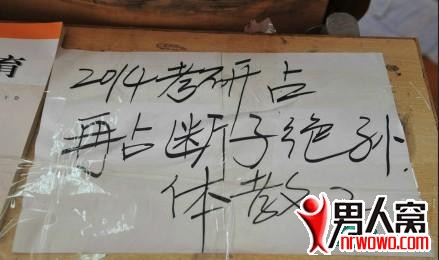 育
2014考研占
再占断子绝孙.
体散
男人窝
nrwowo.com